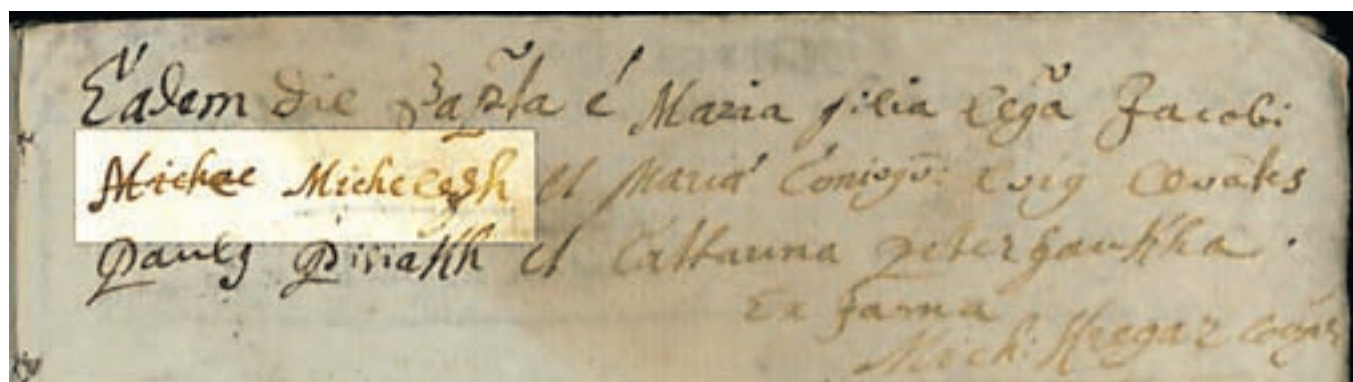 Eadem die Bapta é Maria filia legã Jacobi
Michae Michelesh et Maria Coniugũ: Levãtes
Paulg Piriakh et Catharina peterhankha.
Ex Jama
Mich: Kregar